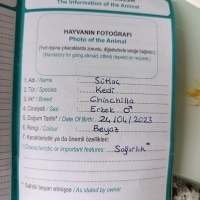 The Information of the Animal
HAYVANIN FOTOĞRAFI
Photo of the Animal
(Yurt dışına çıkacaklarda zorunlu, diğerlerinde isteğe bağlıdır.)
(Mandatory for going abroad, others depend on request.)
1. Adı / Name : Sütlaç
2. Tür / Species : Kedi
3. Irk* / Breed : Chinchilla
4. Cinsiyeti / Sex : Erkek ♂
5. Doğum Tarihi* / Date Of Birth : 24/04/2023
6. Rengi / Colour : Beyaz
7. Karakteristik ya da önemli özellikleri:
Characteristic or important features: Sağırlık*
* Sahibi beyan etmişse / As stated by owner